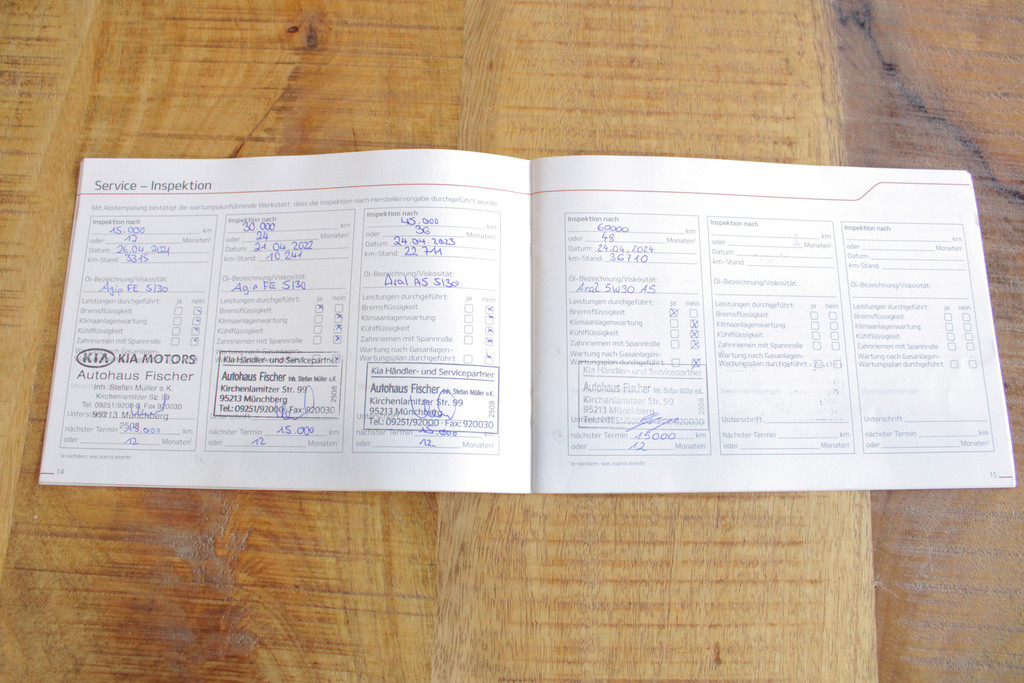 Service – Inspektion
Mit Abstempelung bestätigt die wartungsausführende Werkstatt, dass die Inspektion nach Herstellervorgabe durchgeführt wurde.
Inspektion nach
15.000 km
oder 12 Monaten¹
Datum: 26.04.2021
km-Stand 3315
Öl-Bezeichnung/Viskosität:
Agip FE 5/30
Leistungen durchgeführt: ja nein
Bremsflüssigkeit
Klimaanlagenwartung
Kühlflüssigkeit
Zahnriemen mit Spannrolle
KIA KIA MOTORS
Autohaus Fischer
Inh. Stefan Müller e.K.
Kirchenlamitzer Str. 99
Tel. 09251/92000 Fax 920030
95213 Münchberg
2508
Unterschrift
nächster Termin 15.000 km
oder 12 Monaten¹
Inspektion nach
30.000 km
oder 24 Monaten¹
Datum: 21.04.2022
km-Stand 10241
Öl-Bezeichnung/Viskosität:
Agip FE 5/30
Leistungen durchgeführt: ja nein
Bremsflüssigkeit
Klimaanlagenwartung
Kühlflüssigkeit
Zahnriemen mit Spannrolle
Kia Händler- und Servicepartner
Autohaus Fischer Inh. Stefan Müller e.K.
Kirchenlamitzer Str. 99
95213 Münchberg
Tel.: 09251/92000 · Fax: 920030
2508
nächster Termin 15.000 km
oder 12 Monaten¹
Inspektion nach
45.000 km
oder 36 Monaten¹
Datum: 24.04.2023
km-Stand 22711
Öl-Bezeichnung/Viskosität:
Aral AS 5/30
Leistungen durchgeführt: ja nein
Bremsflüssigkeit
Klimaanlagenwartung
Kühlflüssigkeit
Zahnriemen mit Spannrolle
Wartung nach Gasanlagen-
Wartungsplan durchgeführt
Kia Händler- und Servicepartner
Autohaus Fischer Inh. Stefan Müller e.K.
Kirchenlamitzer Str. 99
95213 Münchberg
Tel.: 09251/92000 · Fax: 920030
2508
nächster Termin 15.000 km
oder 12 Monaten¹
¹Je nachdem, was zuerst eintritt.
14
Inspektion nach
60000 km
oder 48 Monaten¹
Datum: 24.04.2024
km-Stand 36710
Öl-Bezeichnung/Viskosität:
Aral 5W30 15
Leistungen durchgeführt: ja nein
Bremsflüssigkeit
Klimaanlagenwartung
Kühlflüssigkeit
Zahnriemen mit Spannrolle
Wartung nach Gasanlagen-
Wartungsplan durchgeführt
Kia Händler- und Servicepartner
Autohaus Fischer Inh. Stefan Müller e.K.
Kirchenlamitzer Str. 99
95213 Münchberg
2508
nächster Termin 15000 km
oder 12 Monaten¹
Inspektion nach
km
oder Monaten¹
Datum:
km-Stand
Öl-Bezeichnung/Viskosität:
Leistungen durchgeführt: ja nein
Bremsflüssigkeit
Klimaanlagenwartung
Kühlflüssigkeit
Zahnriemen mit Spannrolle
Wartung nach Gasanlagen-
Wartungsplan durchgeführt
Unterschrift
nächster Termin km
oder Monaten¹
Inspektion nach
km
oder Monaten¹
Datum:
km-Stand
Öl-Bezeichnung/Viskosität:
Leistungen durchgeführt: ja nein
Bremsflüssigkeit
Klimaanlagenwartung
Kühlflüssigkeit
Zahnriemen mit Spannrolle
Wartung nach Gasanlagen-
Wartungsplan durchgeführt
Unterschrift
nächster Termin km
oder Monaten¹
¹Je nachdem, was zuerst eintritt.
15